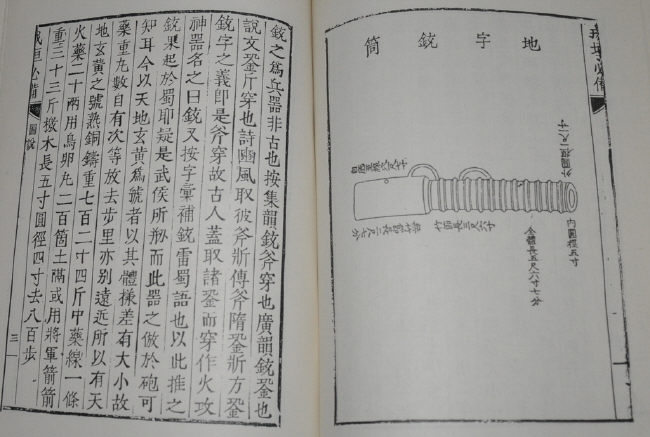 地字銃筒
外圓徑一尺一寸
內圓徑五寸
全體長五尺六寸七分
竹節長三尺六寸
必備
銃之爲兵器非古也按集韻銃斧穿也廣韻銃銎也
說文銎斤穿也詩豳風取彼斧斨傳斧隋銎斨方銎
銃字之義卽是斧穿故古人蓋取諸銎而穿作火攻
神器名之曰銃又按字彙補銃雷蜀語也以此推之
銃果起於蜀耶疑是武侯所刱而此器之倣於砲可
知耳今以天地玄黃爲號者以其體㨾差有大小故
藥重丸數自有次等放去步里亦別遠近所以有天
地玄黃之號熟銅鑄重七百二十四斤中藥線一條
火藥二十兩用鳥卵丸二百箇土隔或用將軍箭箭
重三十三斤檄木長五寸圓徑四寸去八百步
戎垣必備
圖說
三